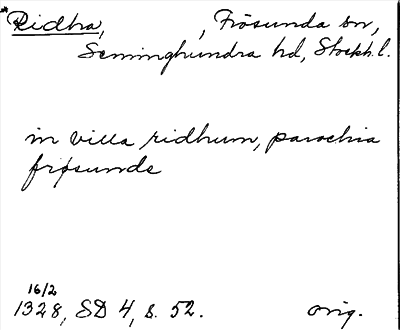 *Ridhra, , Frösunda sn,
Seminghundra hd, Stockh. l.
in villa ridhum, parochia
frøsunde
16/2
1328, SD 4, s. 52. orig.